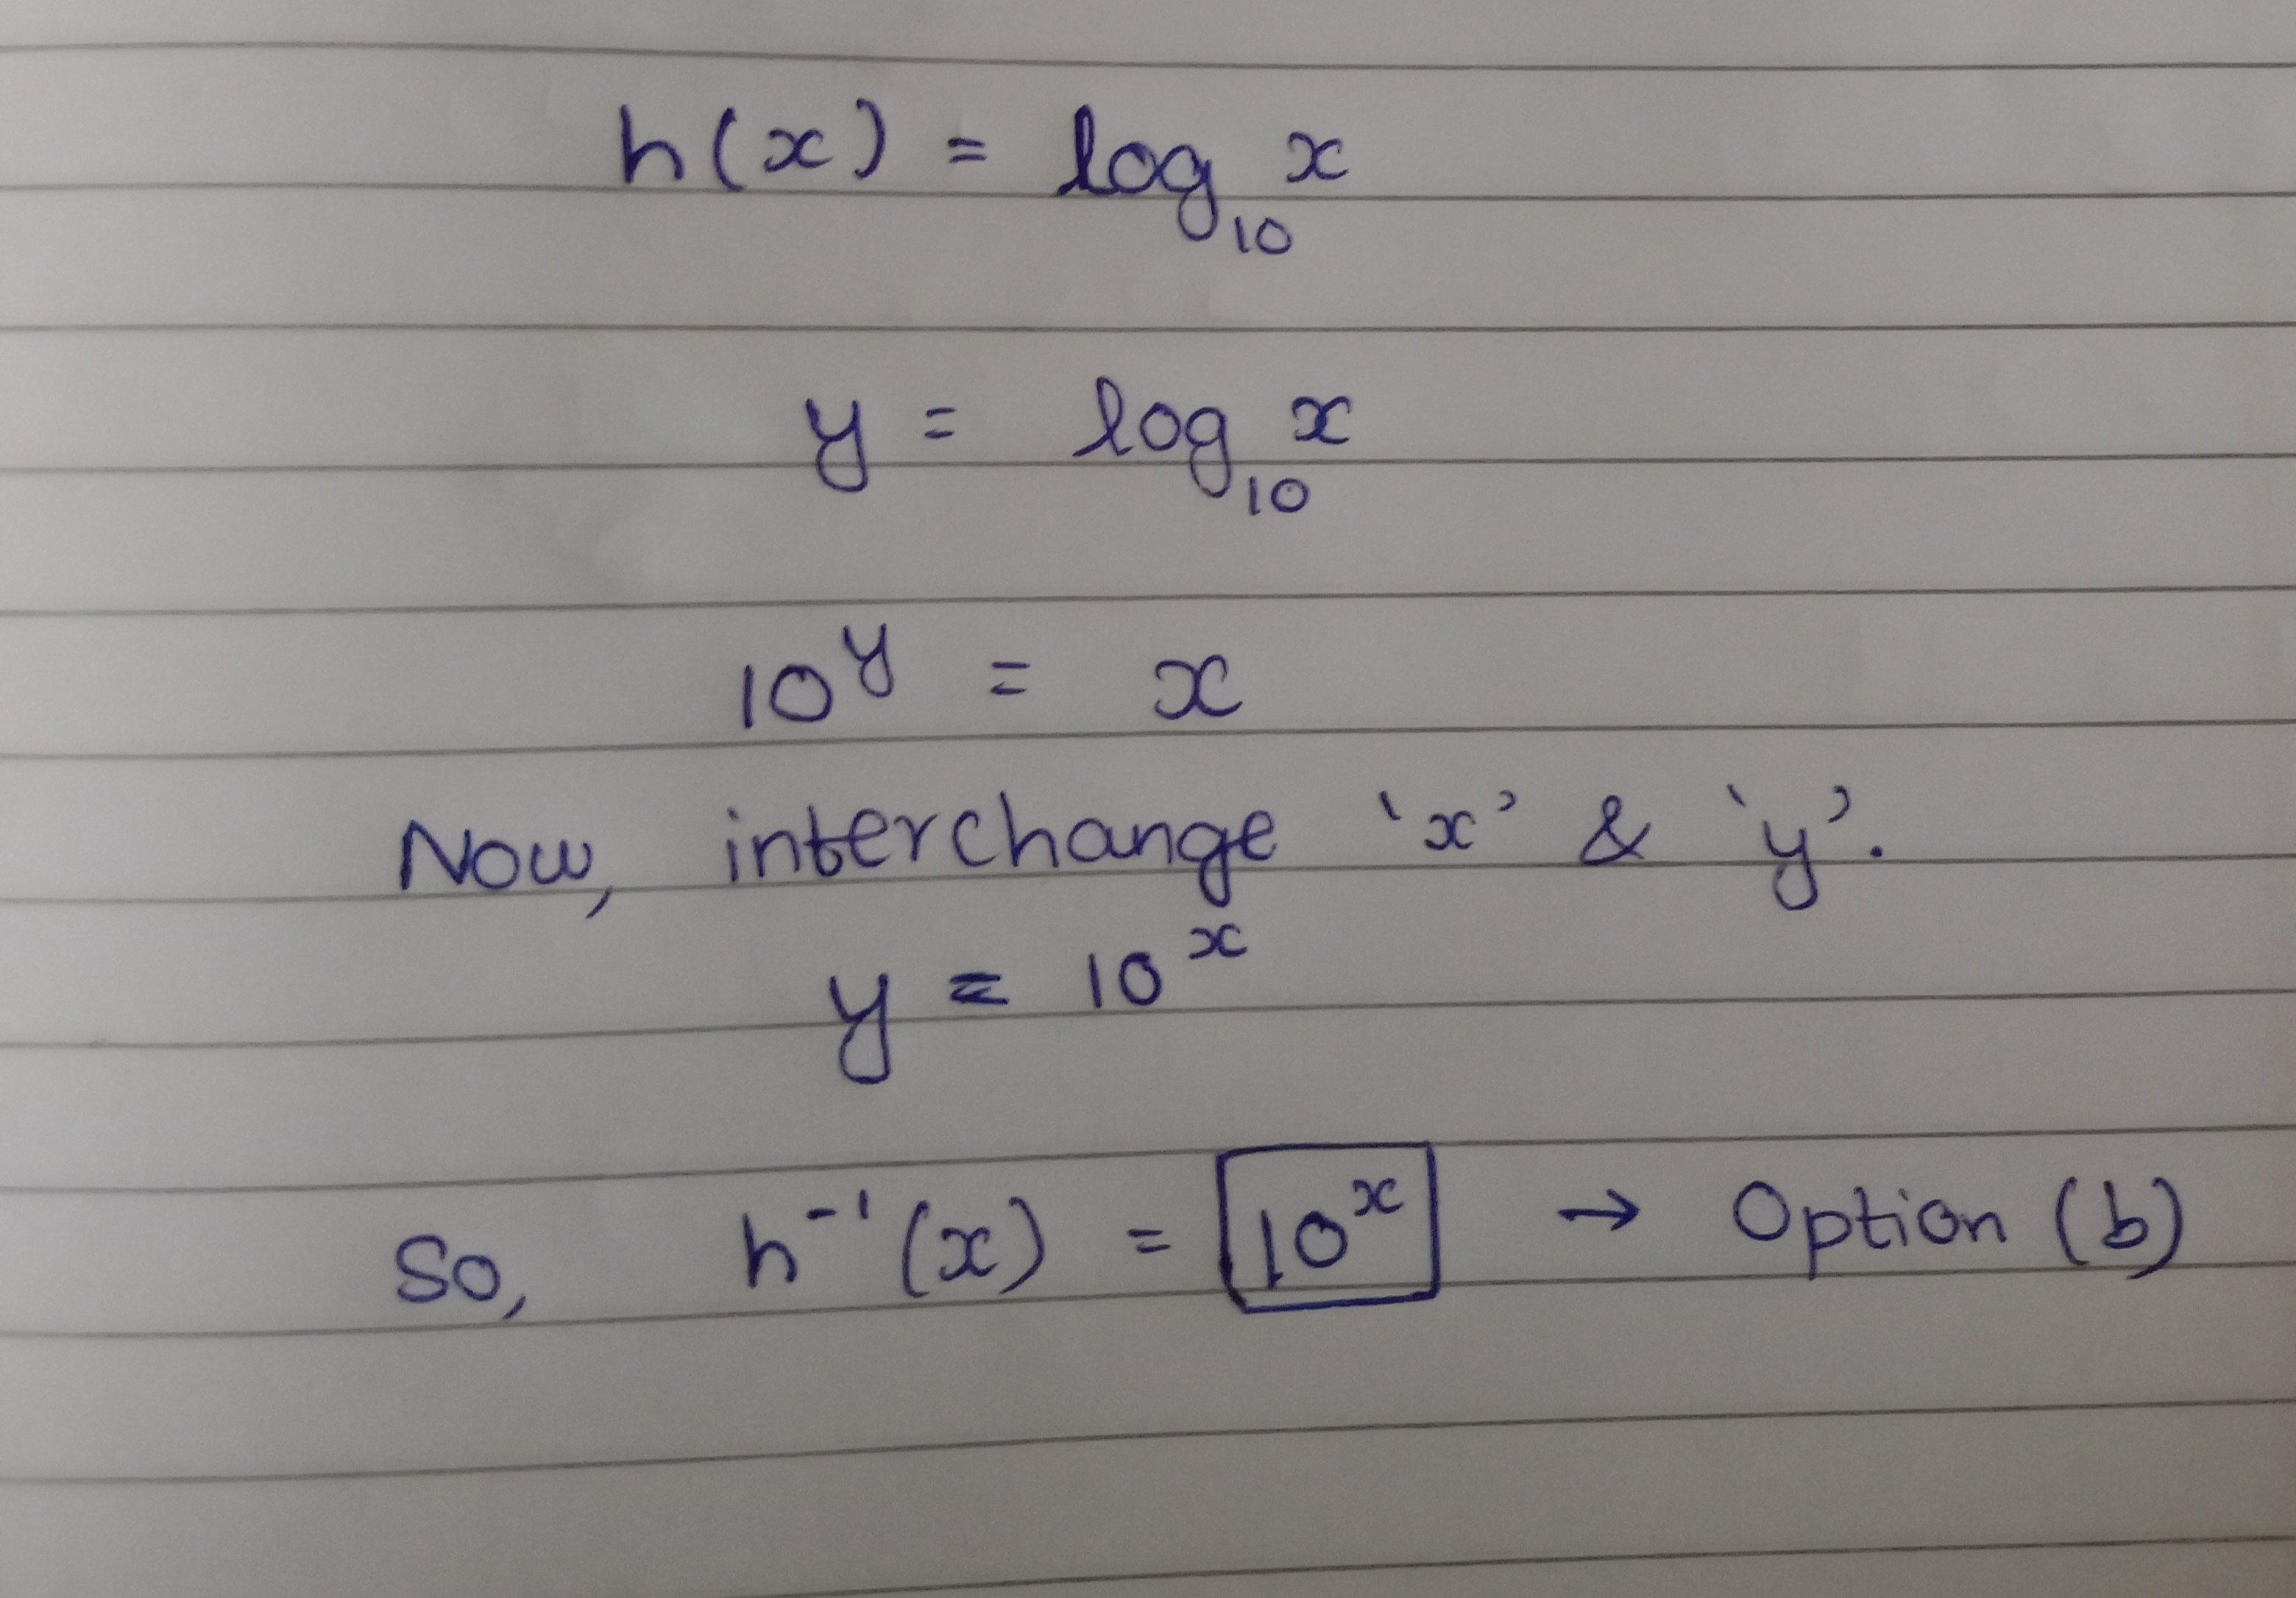 h(x) = log₁₀ x
y = log₁₀ x
10ʸ = x
Now, interchange ‘x’ & ‘y’.
y = 10ˣ
So, h⁻¹(x) = 10ˣ → Option (b)